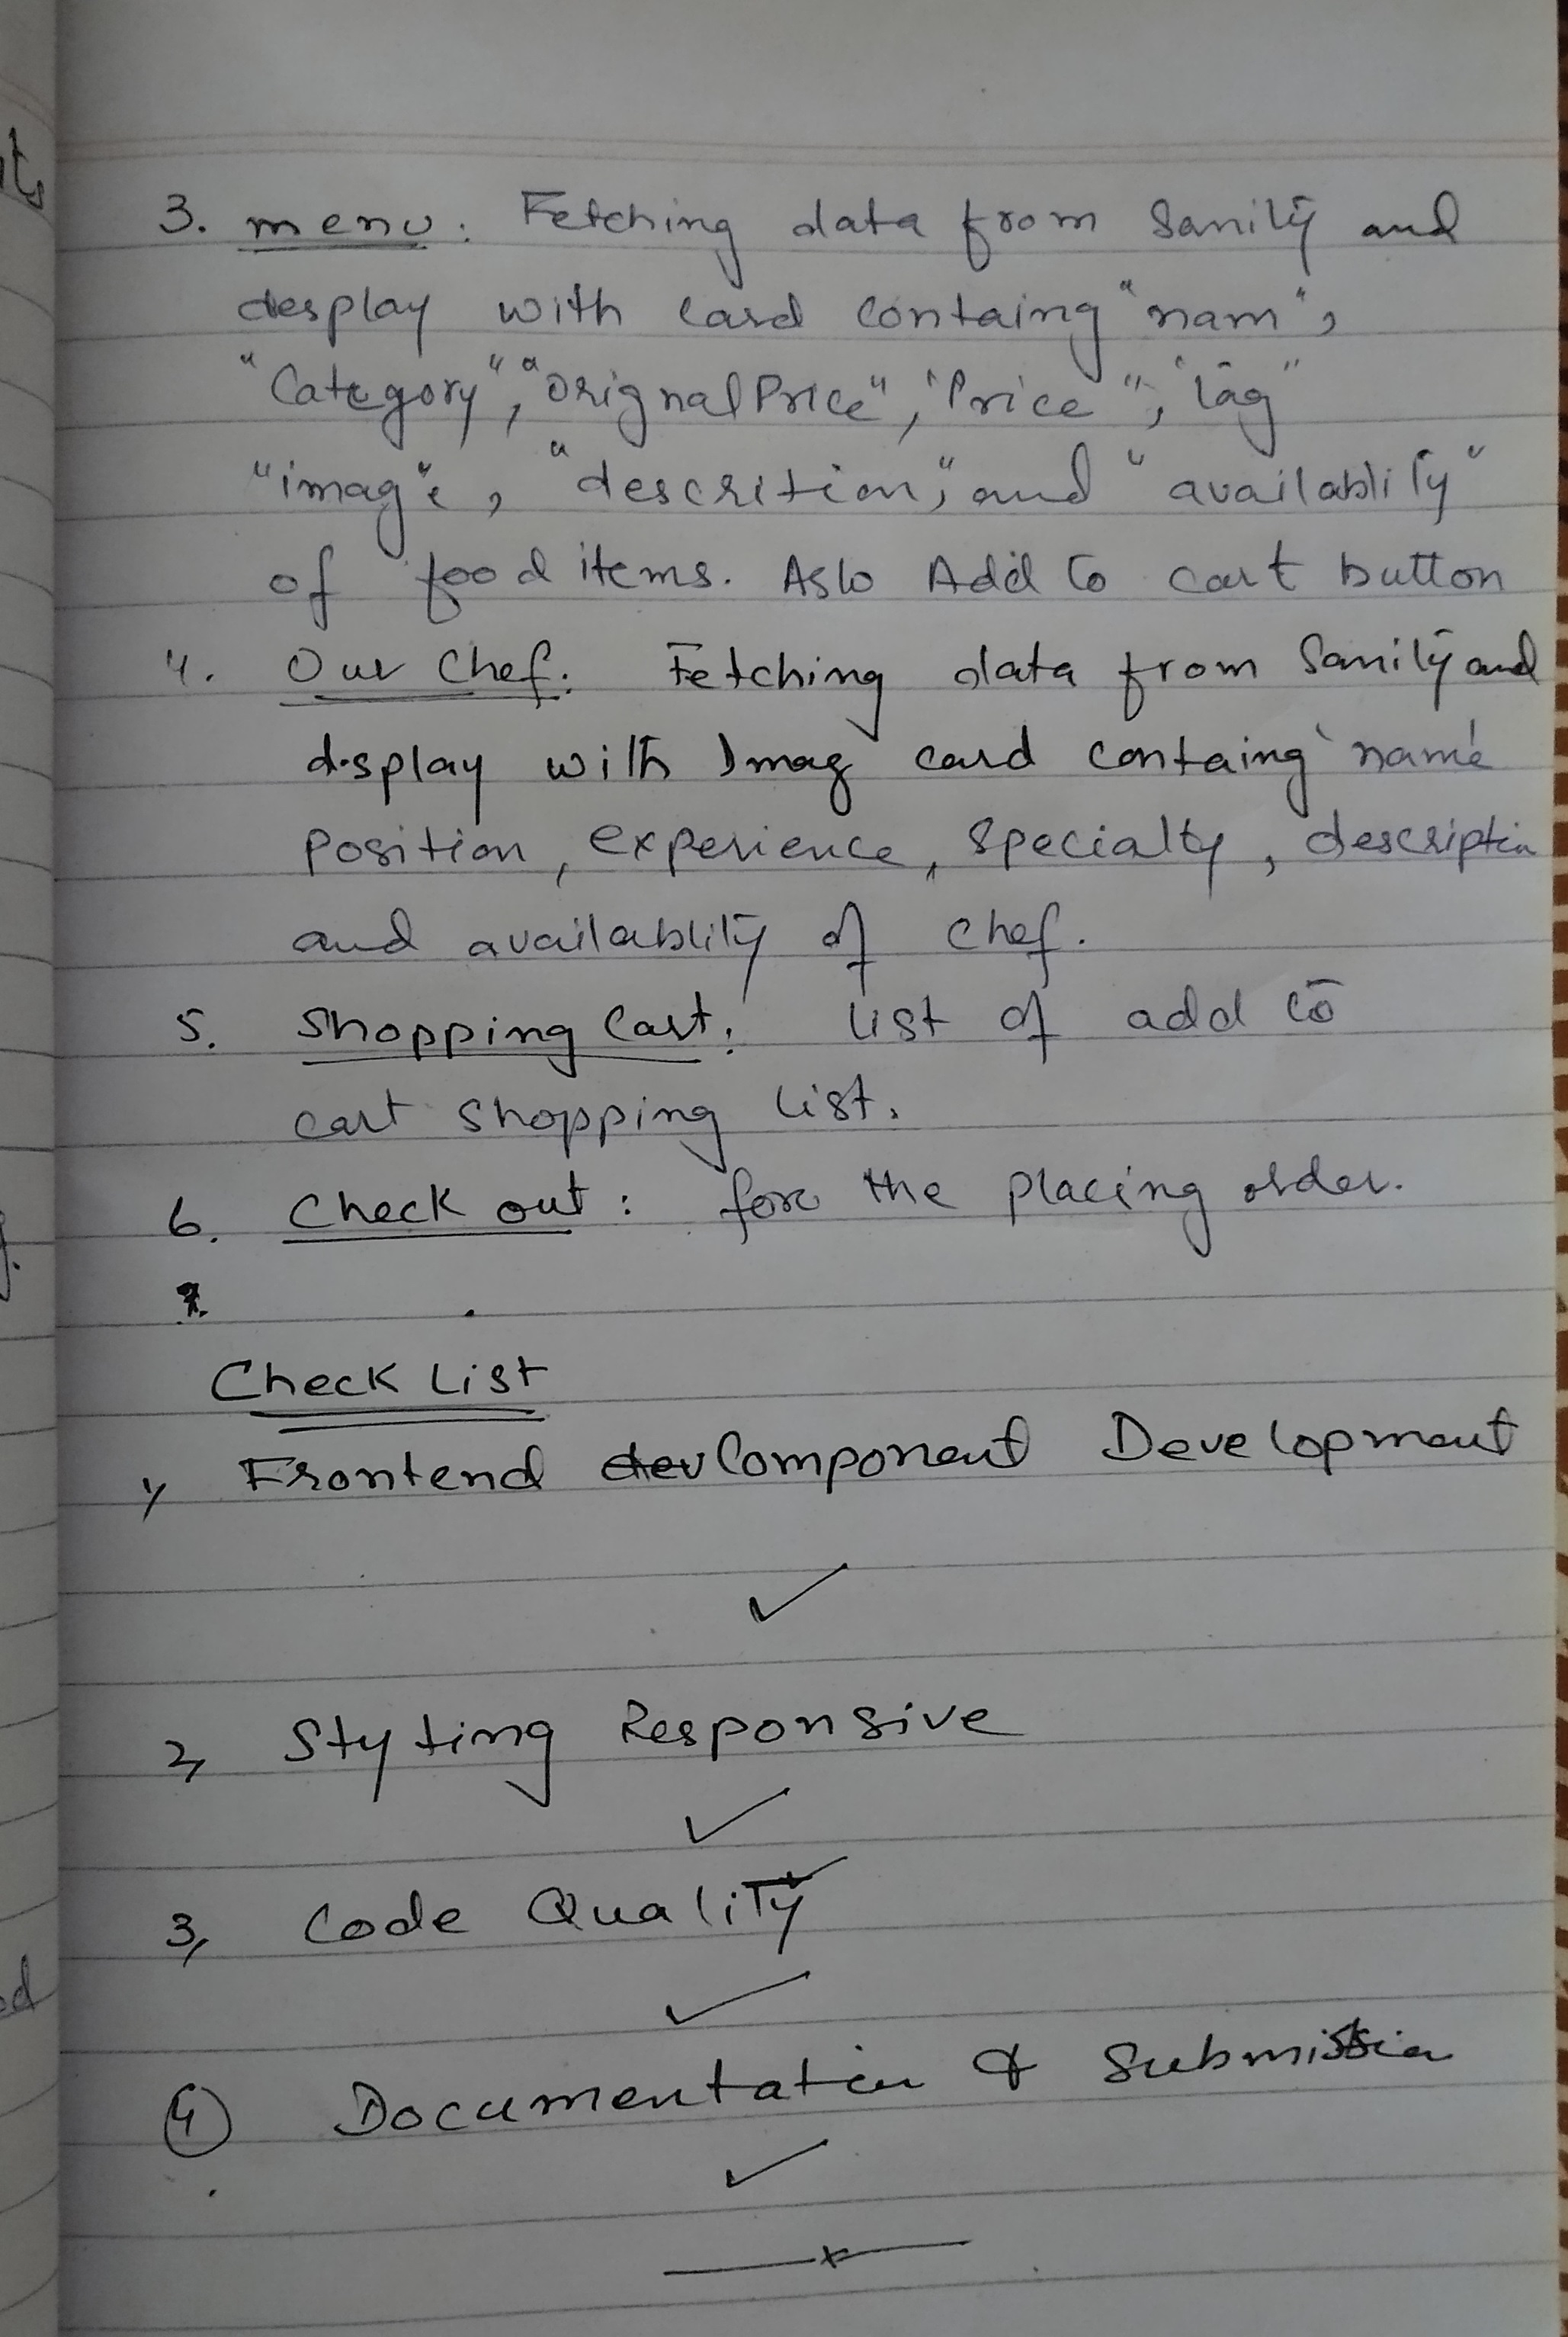 3. menu: Fetching data from Sanity and
desplay with card containg "nam",
"Category", "OrignalPrice", "Price", "tag"
"image", "descrition", and "availablity"
of food items. Aslo Add to cart button
4. Our Chef: Fetching data from Sanity and
display with Imag card containg 'name'
Position, experience, Specialty, description
and availablity of chef.
5. Shopping Cart: list of add to
cart shopping list.
6. Check out: for the placing order.
7.
Check List
1, Frontend dev Component Development
✓
2, Styting Responsive
✓
3, Code Quality
✓
④ Documentation & Submission
✓
its
ed